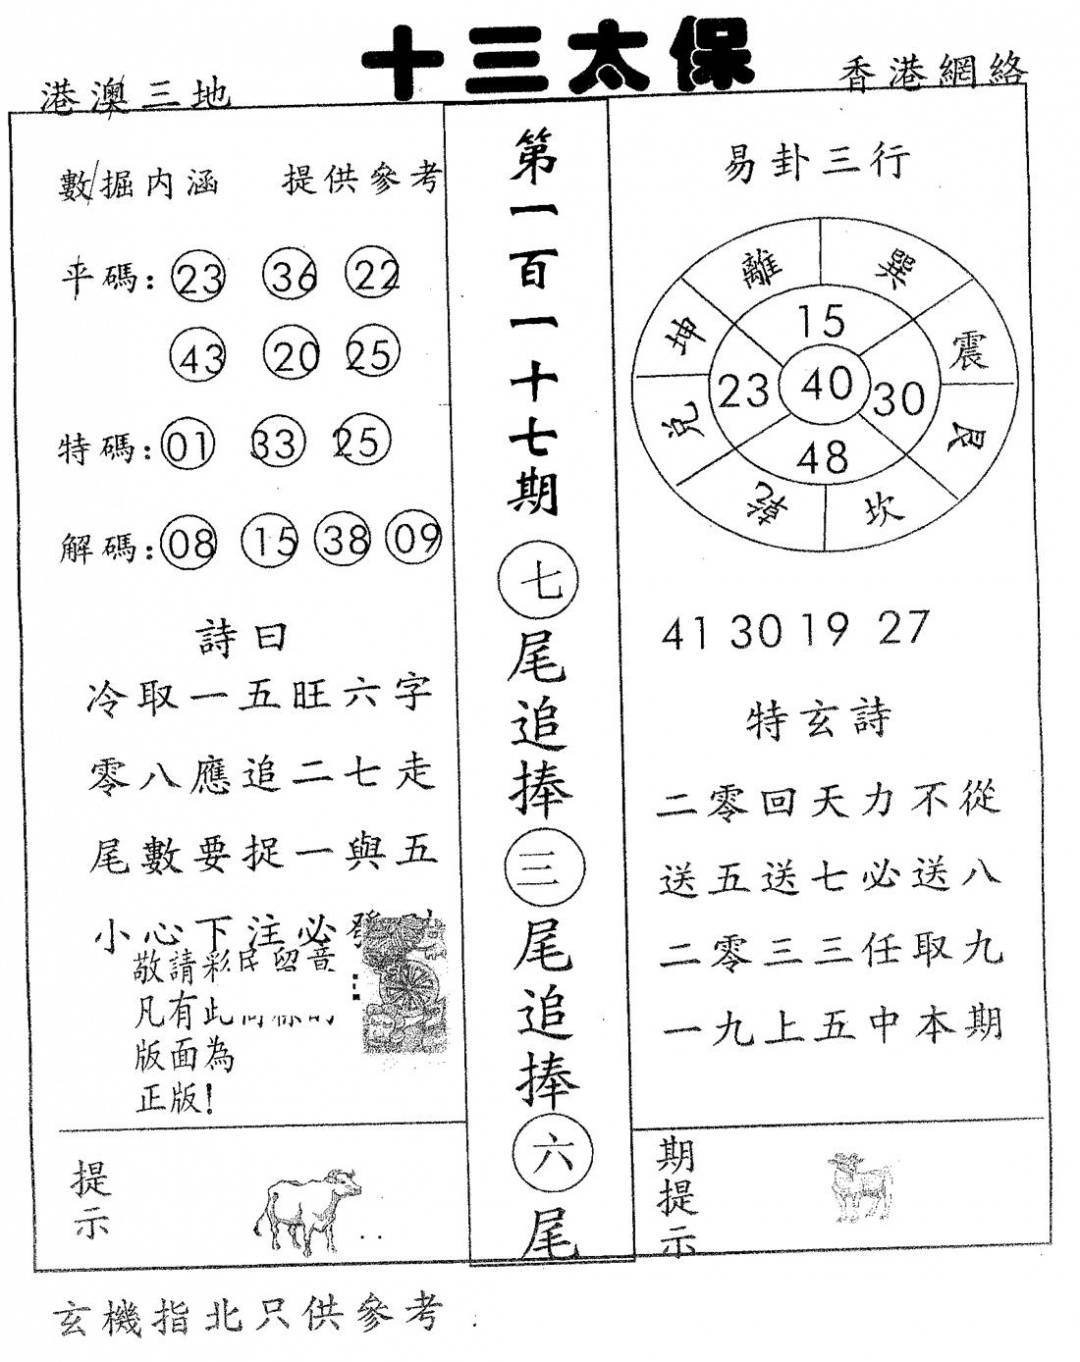 十三太保
港澳三地
香港網絡
數掘内涵 提供參考
平碼：23 36 22
43 20 25
特碼：01 33 25
解碼：08 15 38 09
詩曰
冷取一五旺六字
零八應追二七走
尾數要捉一與五
小心下注必發
敬請彩民留意
凡有此
版面為
正版！
提示
第一百一十七期
七尾追捧三尾追捧六尾
易卦三行
離 巽
坤 震
兌 艮
乾 坎
15
23 40 30
48
41 30 19 27
特玄詩
二零回天力不從
送五送七必送八
二零三三任取九
一九上五中本期
期提示
玄機指北只供參考